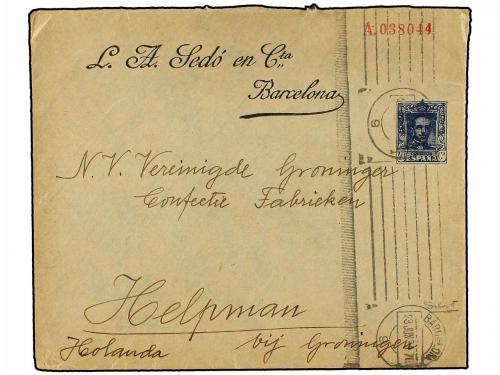 A.038044
L. A. Sedó en Cta
Barcelona
ESPAÑA
N.V. Vereinigde Groninger
Confectie Fabrieken
Helpman
Holanda bij Groningen
BARCELONA